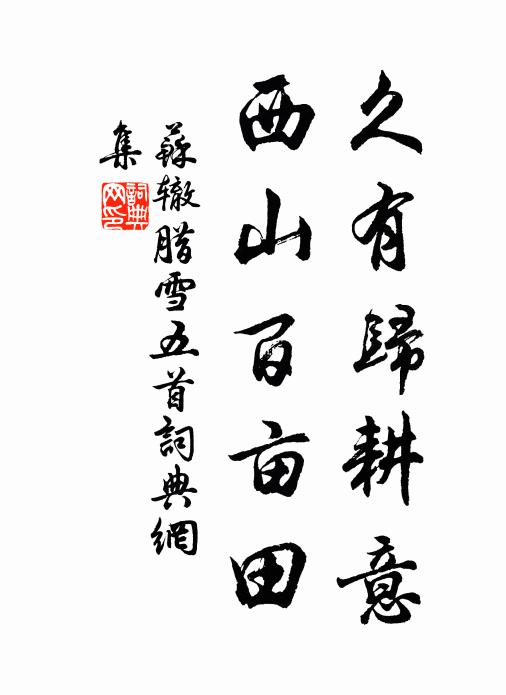 久有歸耕意
西山百亩田
蘇辙腊雪五首詞典網
集
詞典
网印